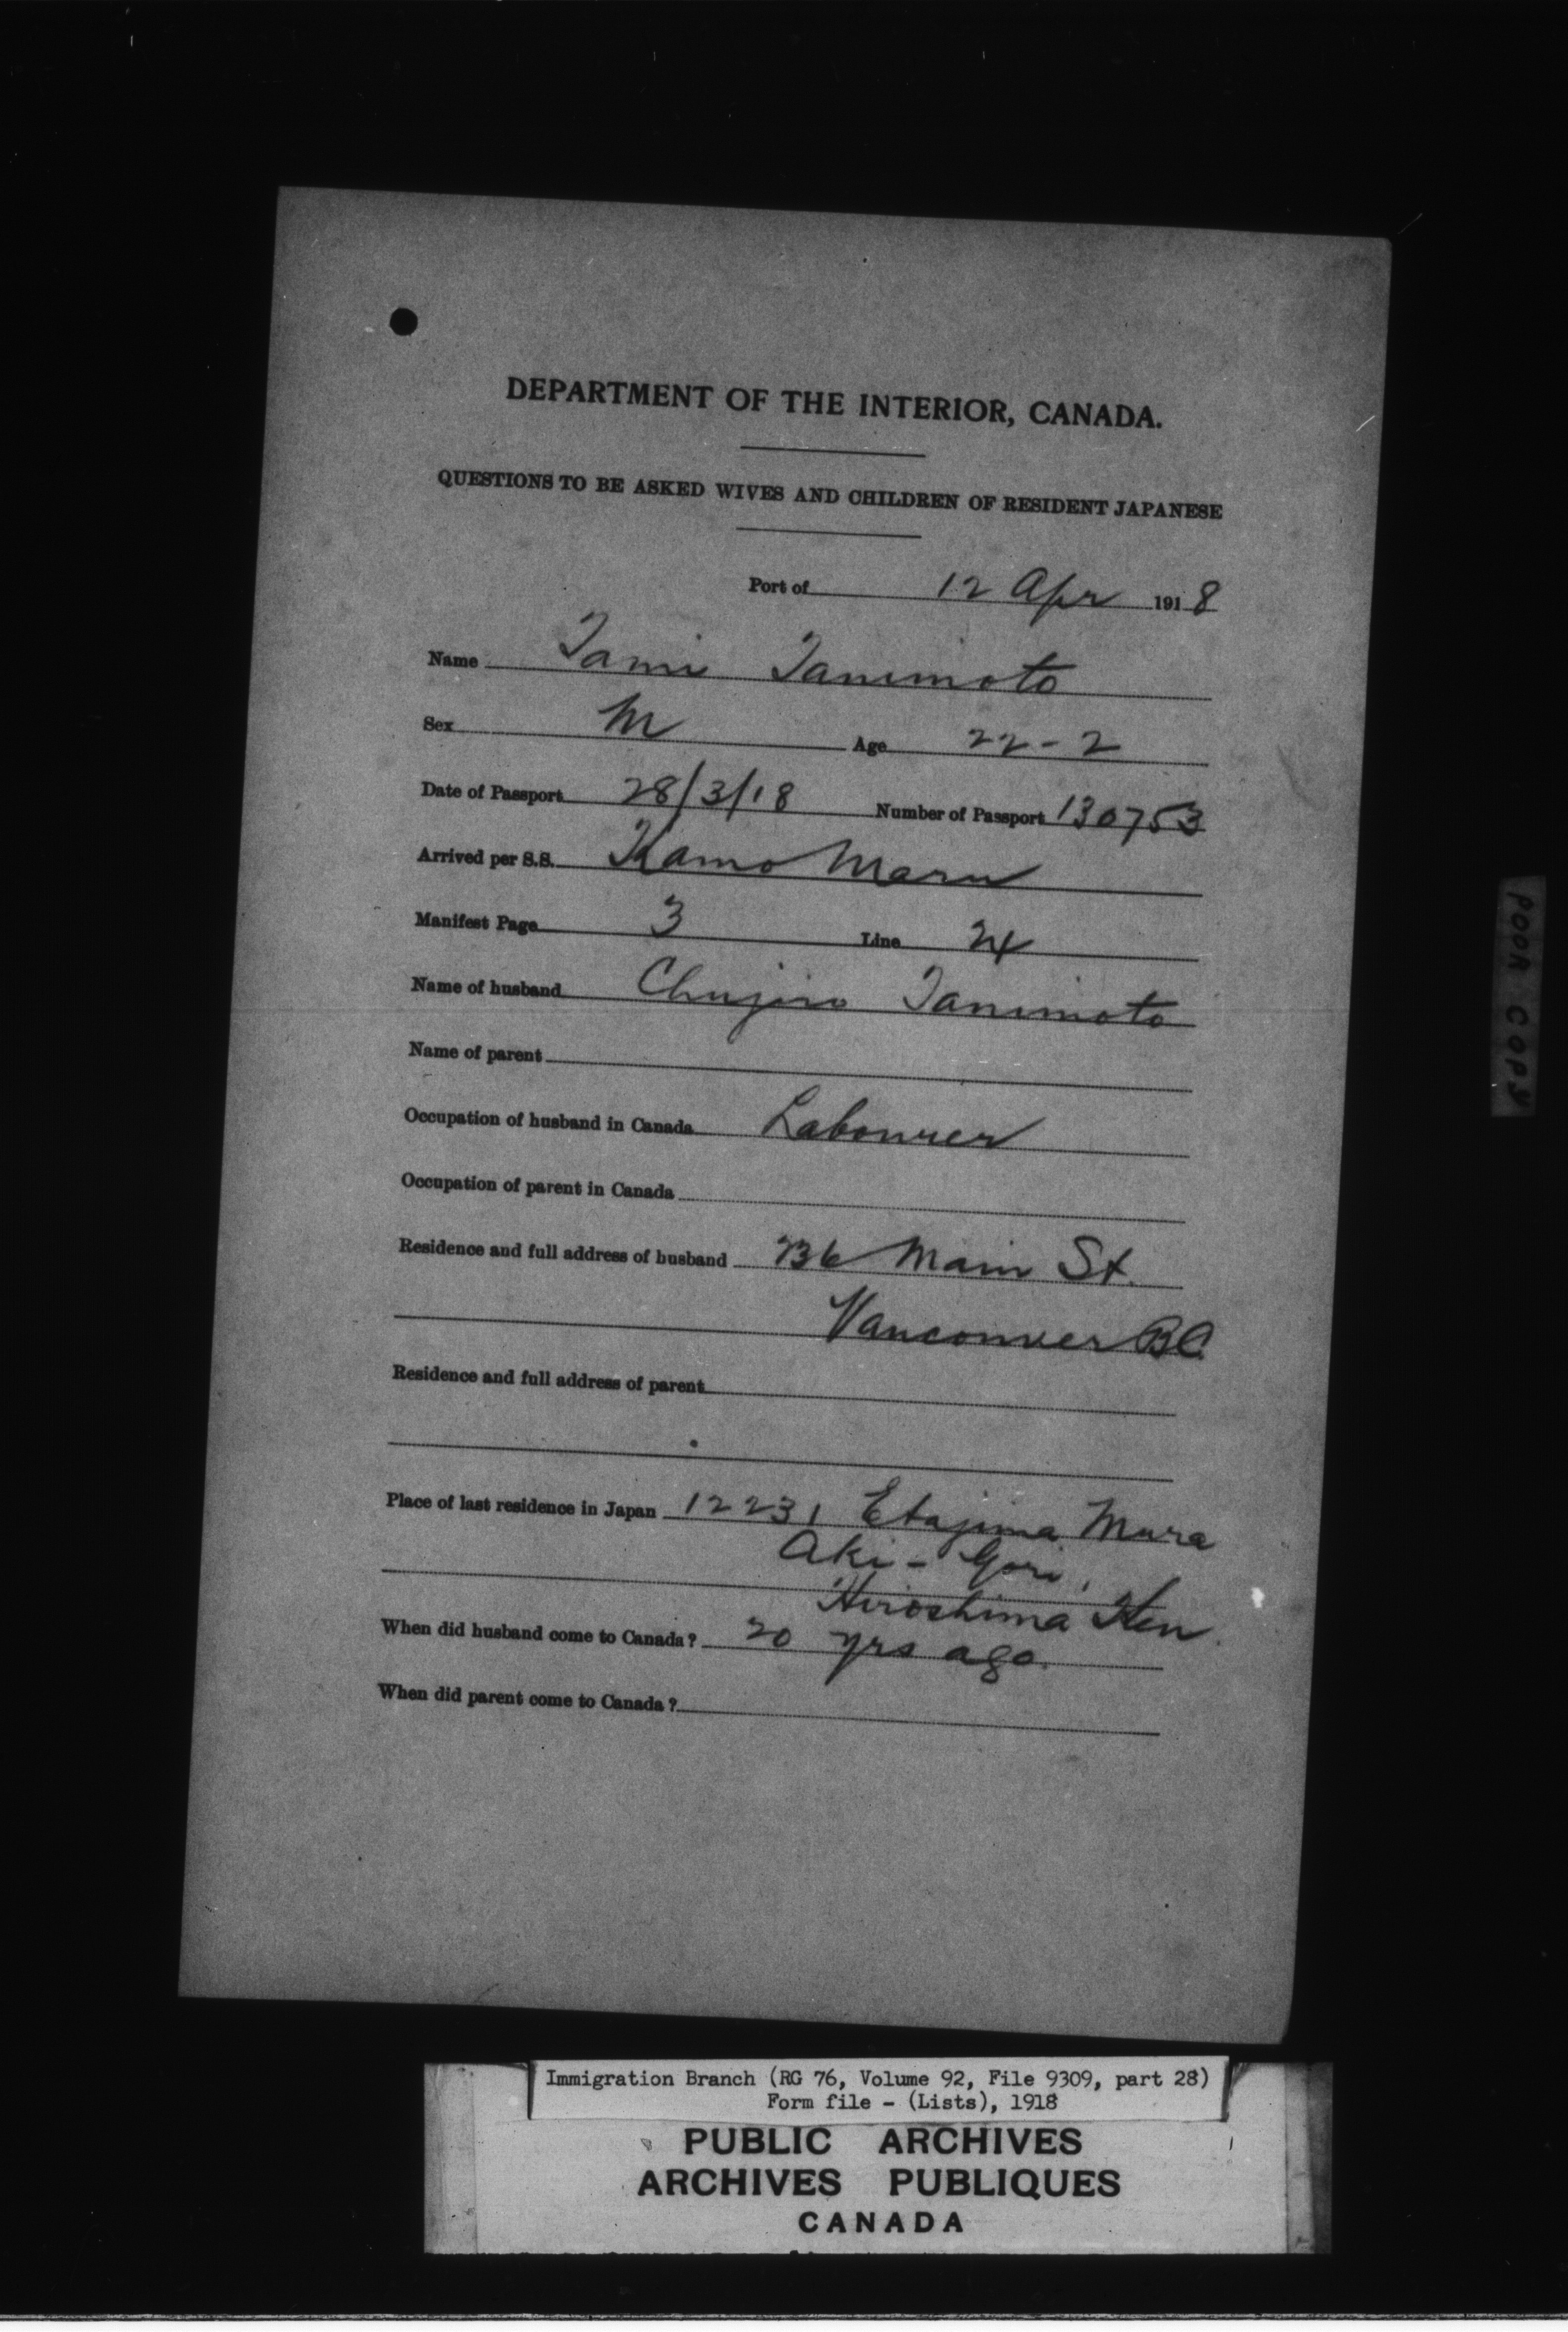 DEPARTMENT OF THE INTERIOR, CANADA.
QUESTIONS TO BE ASKED WIVES AND CHILDREN OF RESIDENT JAPANESE
Port of 12 Apr 1918
Name Tami Tanimoto
Sex M Age 22-2
Date of Passport 28/3/18 Number of Passport 130753
Arrived per S.S. Kamo Maru
Manifest Page 3 Line 24
Name of husband Chujiro Tanimoto
Name of parent
Occupation of husband in Canada Labourer
Occupation of parent in Canada
Residence and full address of husband 236 Main St.
Vancouver BC
Residence and full address of parent
Place of last residence in Japan 12231 Etajima Mura
Aki-Gori,
Hiroshima Ken.
When did husband come to Canada? 20 yrs ago.
When did parent come to Canada?
POOR COPY
Immigration Branch (RG 76, Volume 92, File 9309, part 28)
Form file - (Lists), 1918
PUBLIC ARCHIVES
ARCHIVES PUBLIQUES
CANADA